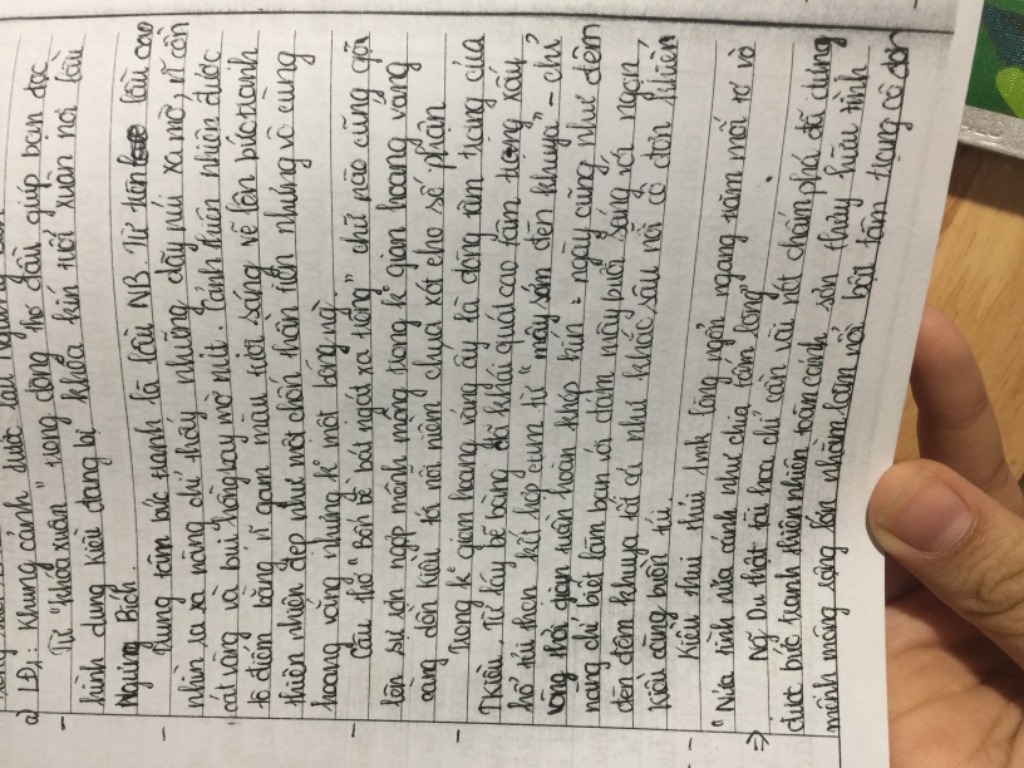 a) LĐ1: Khung cảnh được
- Từ "khóa xuân" trong dòng thơ đầu giúp bạn đọc
hình dung Kiều đang bị khóa kín tuổi xuân nơi lầu
Ngưng Bích.
- Trung tâm bức tranh là lầu NB. Từ trên lầu cao
nhìn ra xa nàng chỉ thấy những dãy núi xa mờ, vì cồn
cát vàng và bụi hồng bay mờ mịt. Cảnh thiên nhiên được
tô điểm bằng vì gam màu tươi sáng vẽ lên bức tranh
thiên nhiên đẹp như một chốn thần tiên nhưng vô cùng
hoang vắng nhưng k° một bóng ng
- Câu thơ "Bốn bề bát ngát xa trông" chữ nào cũng gợi
lên sự rợn ngợp mênh mông trong k° gian hoang vắng
càng dồn Kiều tới nỗi niềm chua xót cho số phận
- Trong k° gian hoang vắng ấy là dòng tâm trạng của
Kiều. Từ láy bẽ bàng đã khái quát cao tâm trạng xấu
hổ tủi thẹn kết hợp cụm từ "mây sớm đèn khuya" - chỉ
vòng thời gian tuần hoàn khép kín = ngày cũng như đêm
nàng chỉ biết làm bạn với đám mây buổi sáng với ngọn
đèn đêm khuya tất cả như khắc sâu nỗi cô đơn khiến
Kiều càng buồn tủi.
- Kiều thui thủi 1mk lòng ngổn ngang trăm mối tơ vò
"Nửa tình nửa cảnh như chia tấm lòng"
⇒ Ng Du thật tài hoa chỉ cần vài nét chấm phá đã dựng
được bức tranh thiên nhiên toàn cảnh sơn thủy hữu tình
mênh mông rộng lớn nhằm làm nổi bật tâm trạng cô đơn